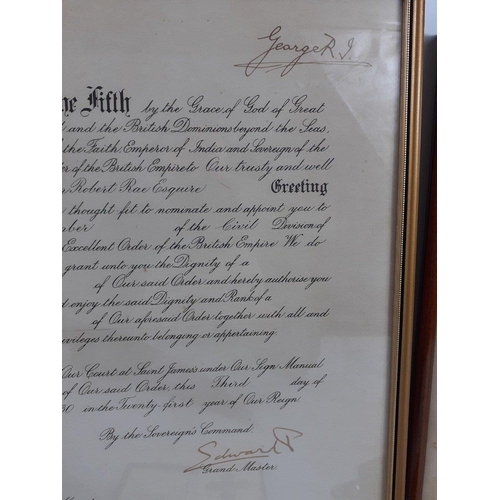 George R. I.
he Fifth by the Grace of God of Great
and the British Dominions beyond the Seas,
the Faith, Emperor of India and Sovereign of the
er of the British Empire to Our trusty and well
Robert Rae Esquire Greeting
thought fit to nominate and appoint you to
mber of the Civil Division of
Excellent Order of the British Empire We do
grant unto you the Dignity of a
of Our said Order and hereby authorise you
d enjoy the said Dignity and Rank of a
of Our aforesaid Order together with all and
ivileges thereunto belonging or appertaining.
Our Court at Saint James's under Our Sign Manual
of Our said Order, this Third day of
30 in the Twenty-first year of Our Reign
By the Sovereign's Command
Edward P
Grand Master.